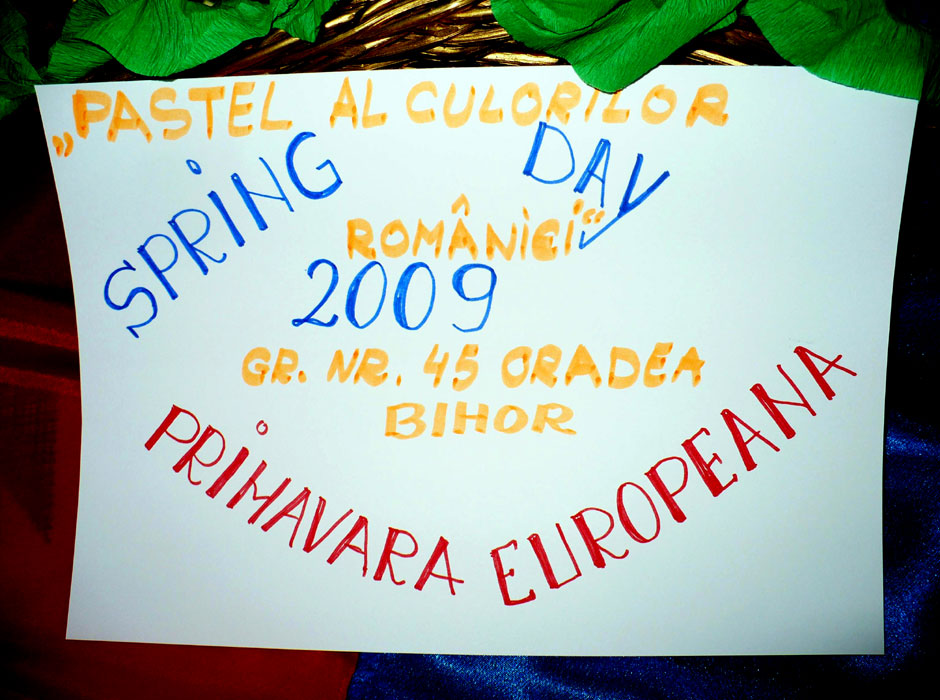 „PASTEL AL CULORILOR
SPRING DAY
ROMÂNIEI“
2009
GR. NR. 45 ORADEA
BIHOR
PRIMAVARA EUROPEANA